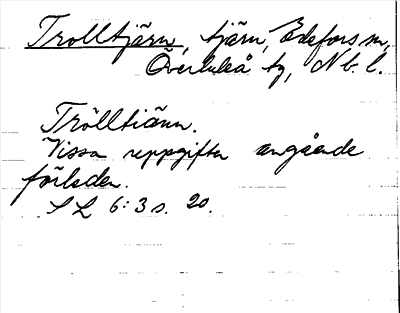 Trolltjärn, tjärn, Edefors sn,
Överluleå tg, Nb. l.
Trölltiänn.
Vissa uppgifter angående
förleden.
SL 6:3 s. 20.